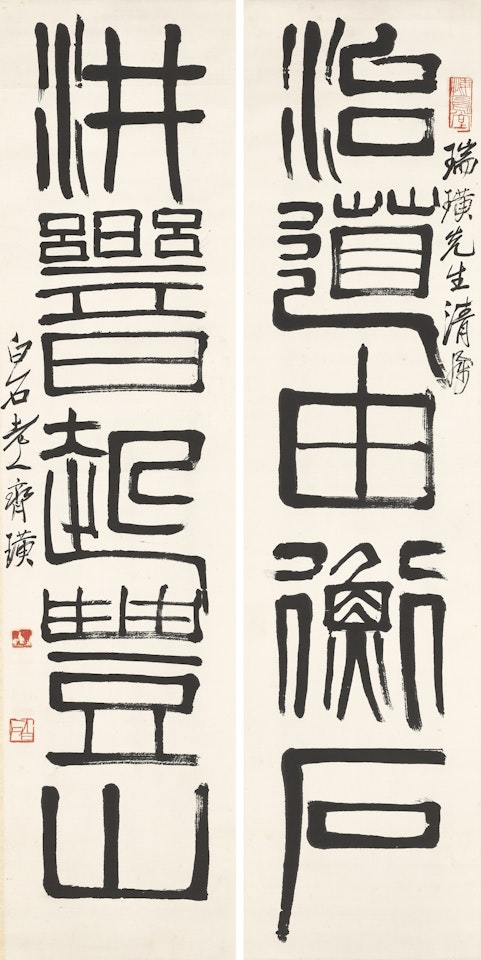 悔烏堂
瑞璜先生清屬
治道由衡石
洪響起豐山
白石老人齊璜